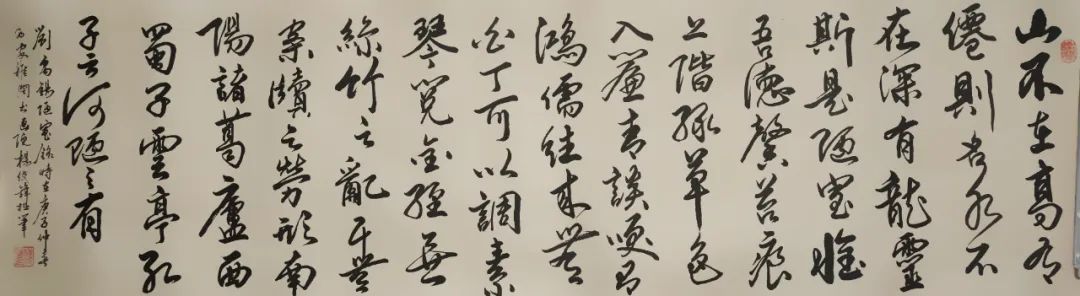 山不在高有
僊則名水不
在深有龍靈
斯是陋室惟
吾德馨苔痕
上階緑草色
入簾青談咲有
鴻儒往來無
白丁可以調素
琴閱金經無
絲竹之亂耳無
案牘之勞形南
陽諸葛廬西
蜀子雲亭孔
子云何陋之有
劉禹錫陋室銘時在庚子仲春
西安雅閣書画院楊俊